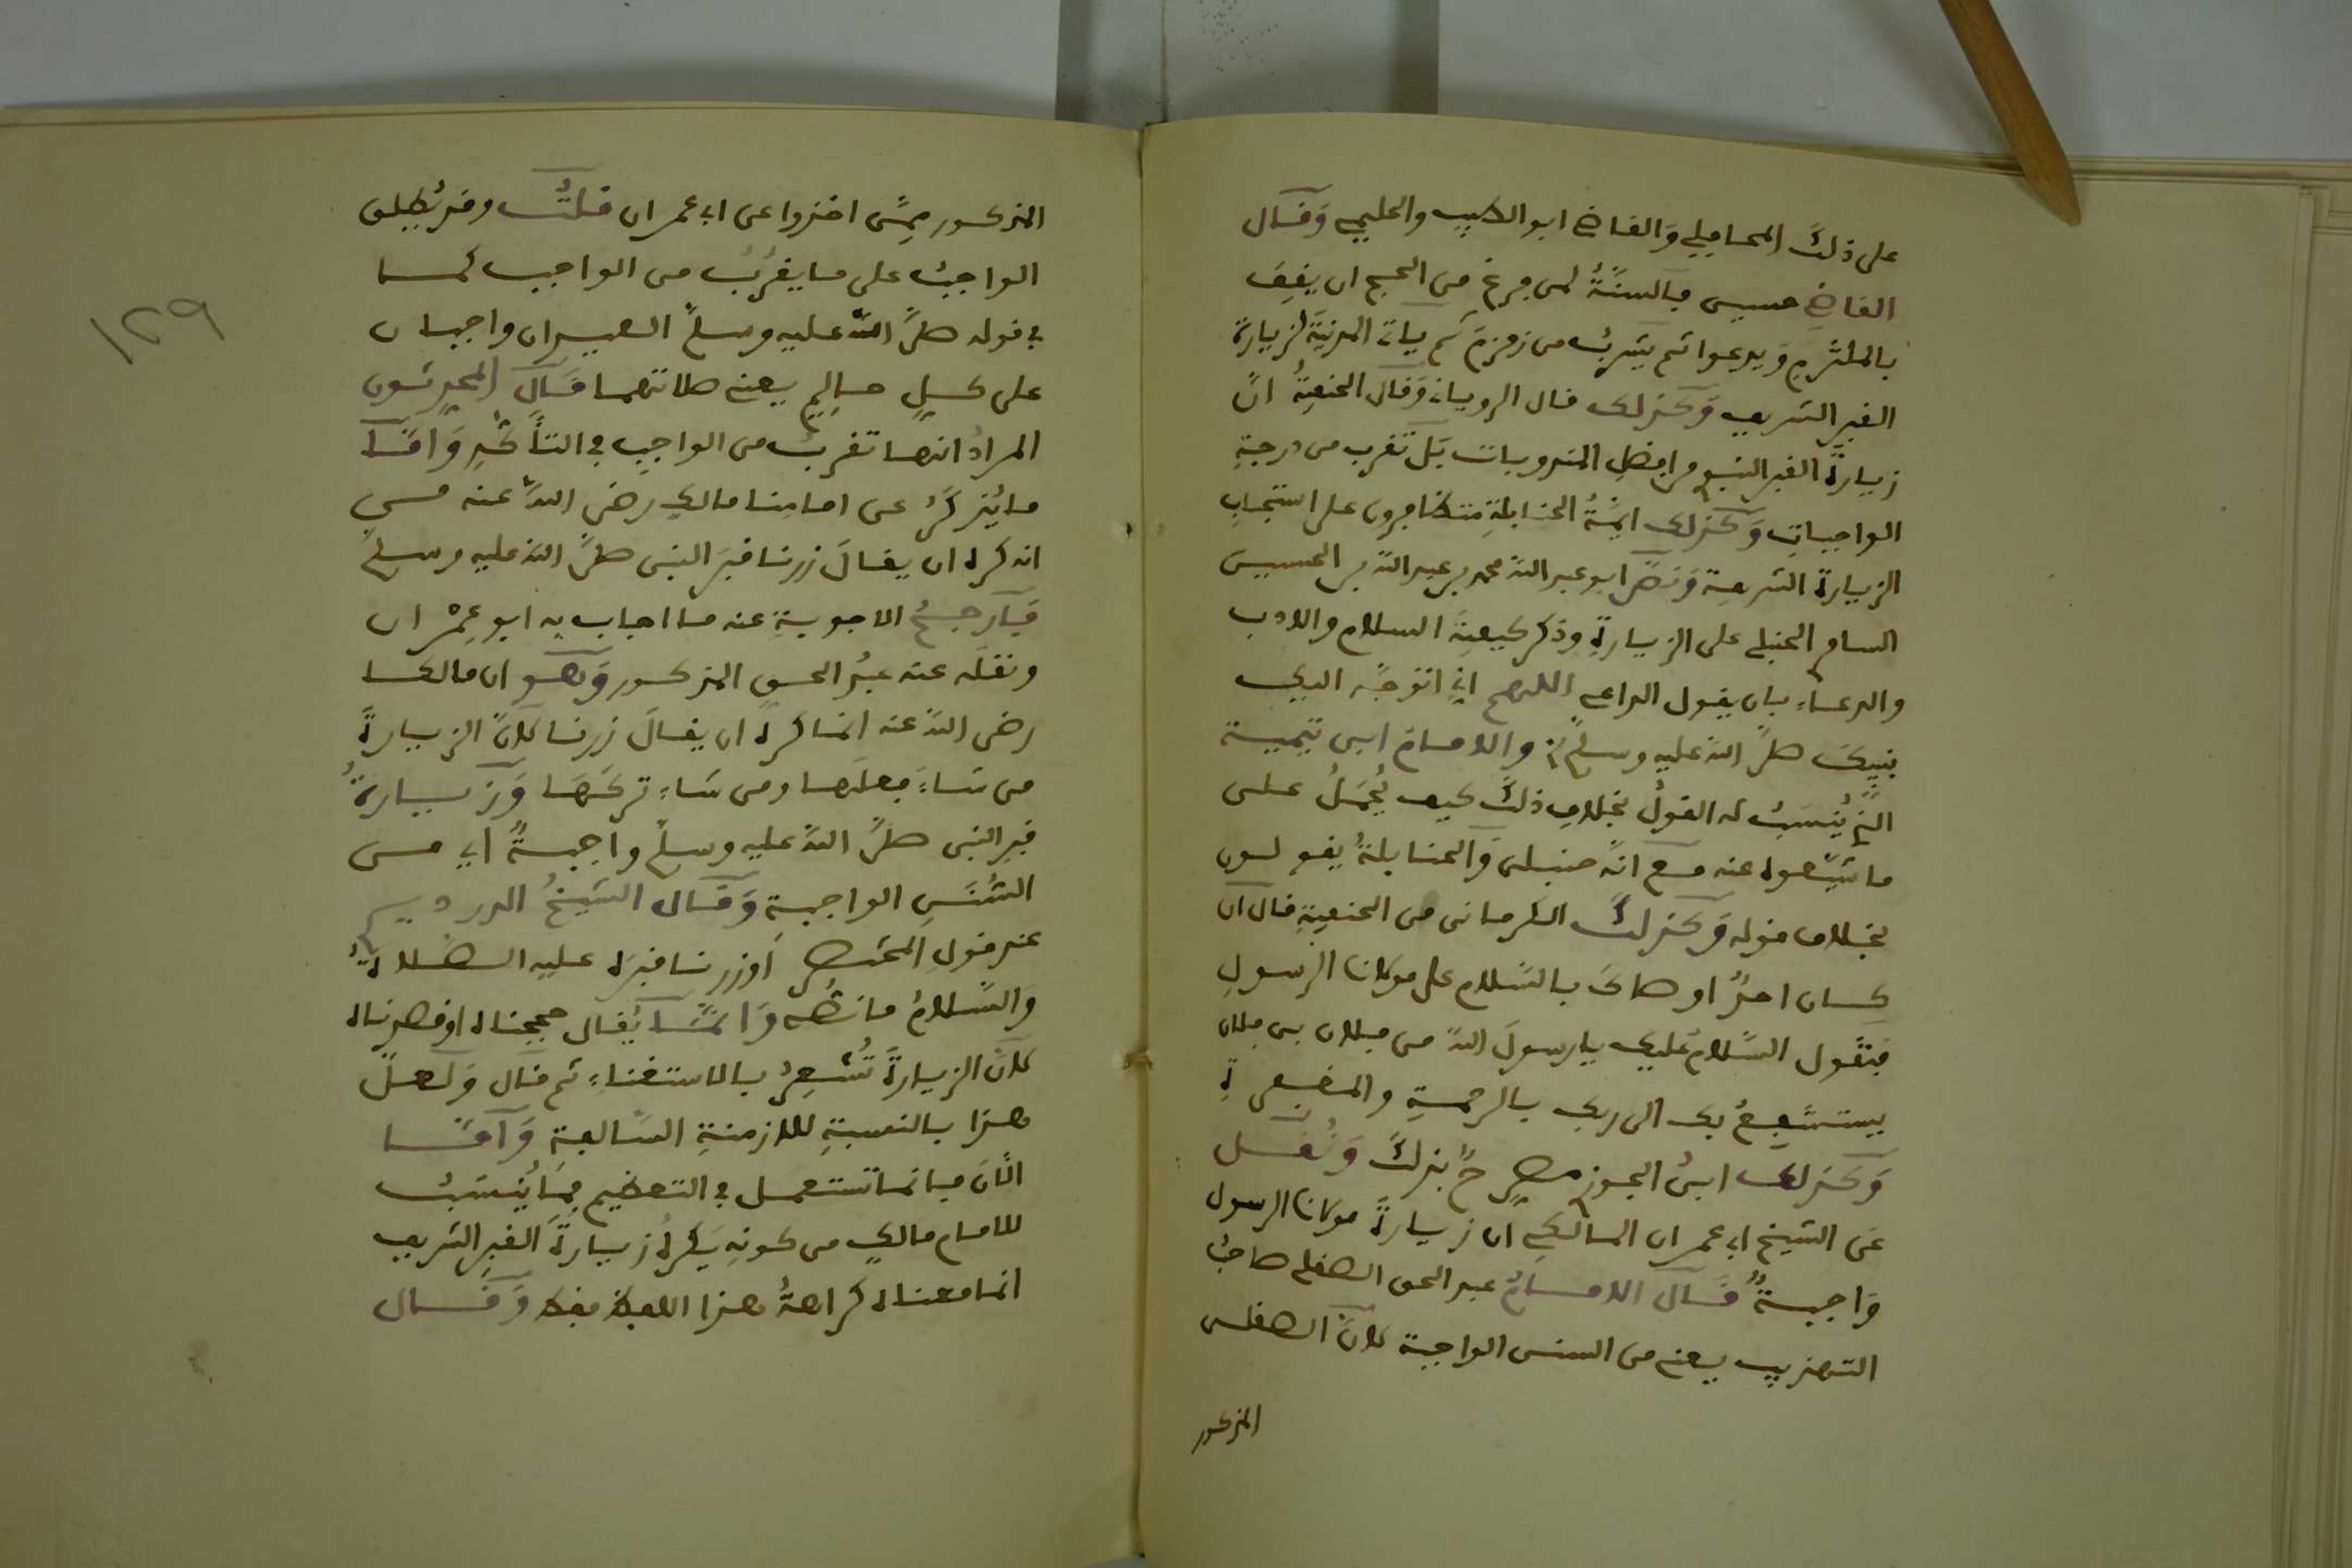 على ذلك المحاملي والقاضي ابو الطيب والحليمي وقال
القاضي حسين فالسنة لمن فرغ من الحج ان يقف
بالملتزم ويدعوا ثم يشرب من زمزم ثم ياتي المدينة لزيارة
القبر الشريف وكذلك قال الروياني وقال الحنفية ان
زيارة القبر النبوي من افضل المندوبات بل تقرب من درجة
الواجبات وكذلك ايمة الحنابلة متظافرون على استحباب
الزيارة الشريفة ونص ابو عبد الله محمد بن عبد الله بن الحسين
السامري الحنبلي على الزيارة وذكر كيفية السلام والادب
والدعاء بان يقول الداعي اللهم اني اتوجه اليك
بنبيك صلى الله عليه وسلم والامام ابن تيمية
الذي ينسب له القول بخلاف ذلك كيف يحمل على
ما شيعوه عنه مع انه حنبلي والحنابلة يقولون
بخلاف قوله وكذلك الكرماني من الحنفية قال ان
كان احد اوصاك بالسلام على مولانا الرسول
فتقول السلام عليك يا رسول الله من فلان بن فلان
يستشفع بك الى ربك بالرحمة والمغفرة
وكذلك ابن الجوزي صرح بذلك ونقل
عن الشيخ ابي عمران المالكي ان زيارة مولانا الرسول
واجبة قال الامام عبد الحق الصقلي صاحب
التهذيب يعني من السنن الواجبة لان الصقلي
المذكور
١٢٩
المذكور ممن اخذوا عن ابي عمران قلت وقد يطلق
الواجب على ما يقرب من الواجب كما
في قوله صلى الله عليه وسلم العيدان واجبان
على كل حالم يعني صلاتهما قال المحدثون
المراد انها تقرب من الواجب في التأكد واما
ما يذكر عن امامنا مالك رضي الله عنه من
انه كره ان يقال زرنا قبر النبي صلى الله عليه وسلم
فارجح الاجوبة عنه ما اجاب به ابو عمران
ونقله عنه عبد الحق المذكور وهو ان مالكا
رضي الله عنه انما كره ان يقال زرنا لان الزيارة
من شاء فعلها ومن شاء تركها وزيارة
قبر النبي صلى الله عليه وسلم واجبة اي من
السنن الواجبة وقال الشيخ الدرديري
عند قول المختصر او زرنا قبره عليه الصلاة
والسلام ما نصه وانما يقال حججناه او قصدناه
لان الزيارة تشعر بالاستغناء ثم قال ولعل
هذا بالنسبة للازمنة السالفة واما
الآن فانما تستعمل في التعظيم فما ينسب
للامام مالك من كونه يكره زيارة القبر الشريف
انما معناه كراهة هذا اللفظ فقط وقال